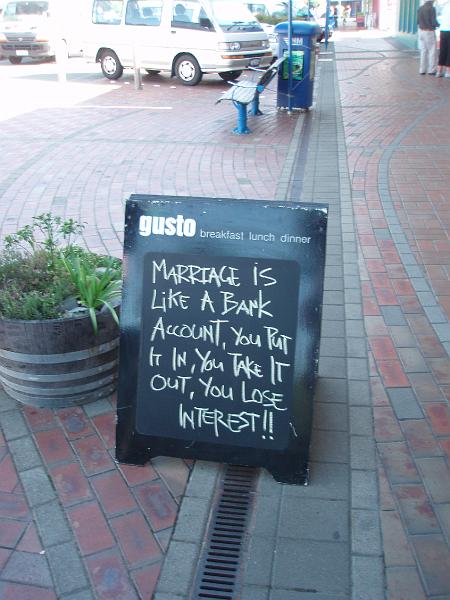 gusto breakfast lunch dinner
MARRIAGE IS
LIKE A BANK
ACCOUNT, YOU PUT
IT IN, YOU TAKE IT
OUT, YOU LOSE
INTEREST!!